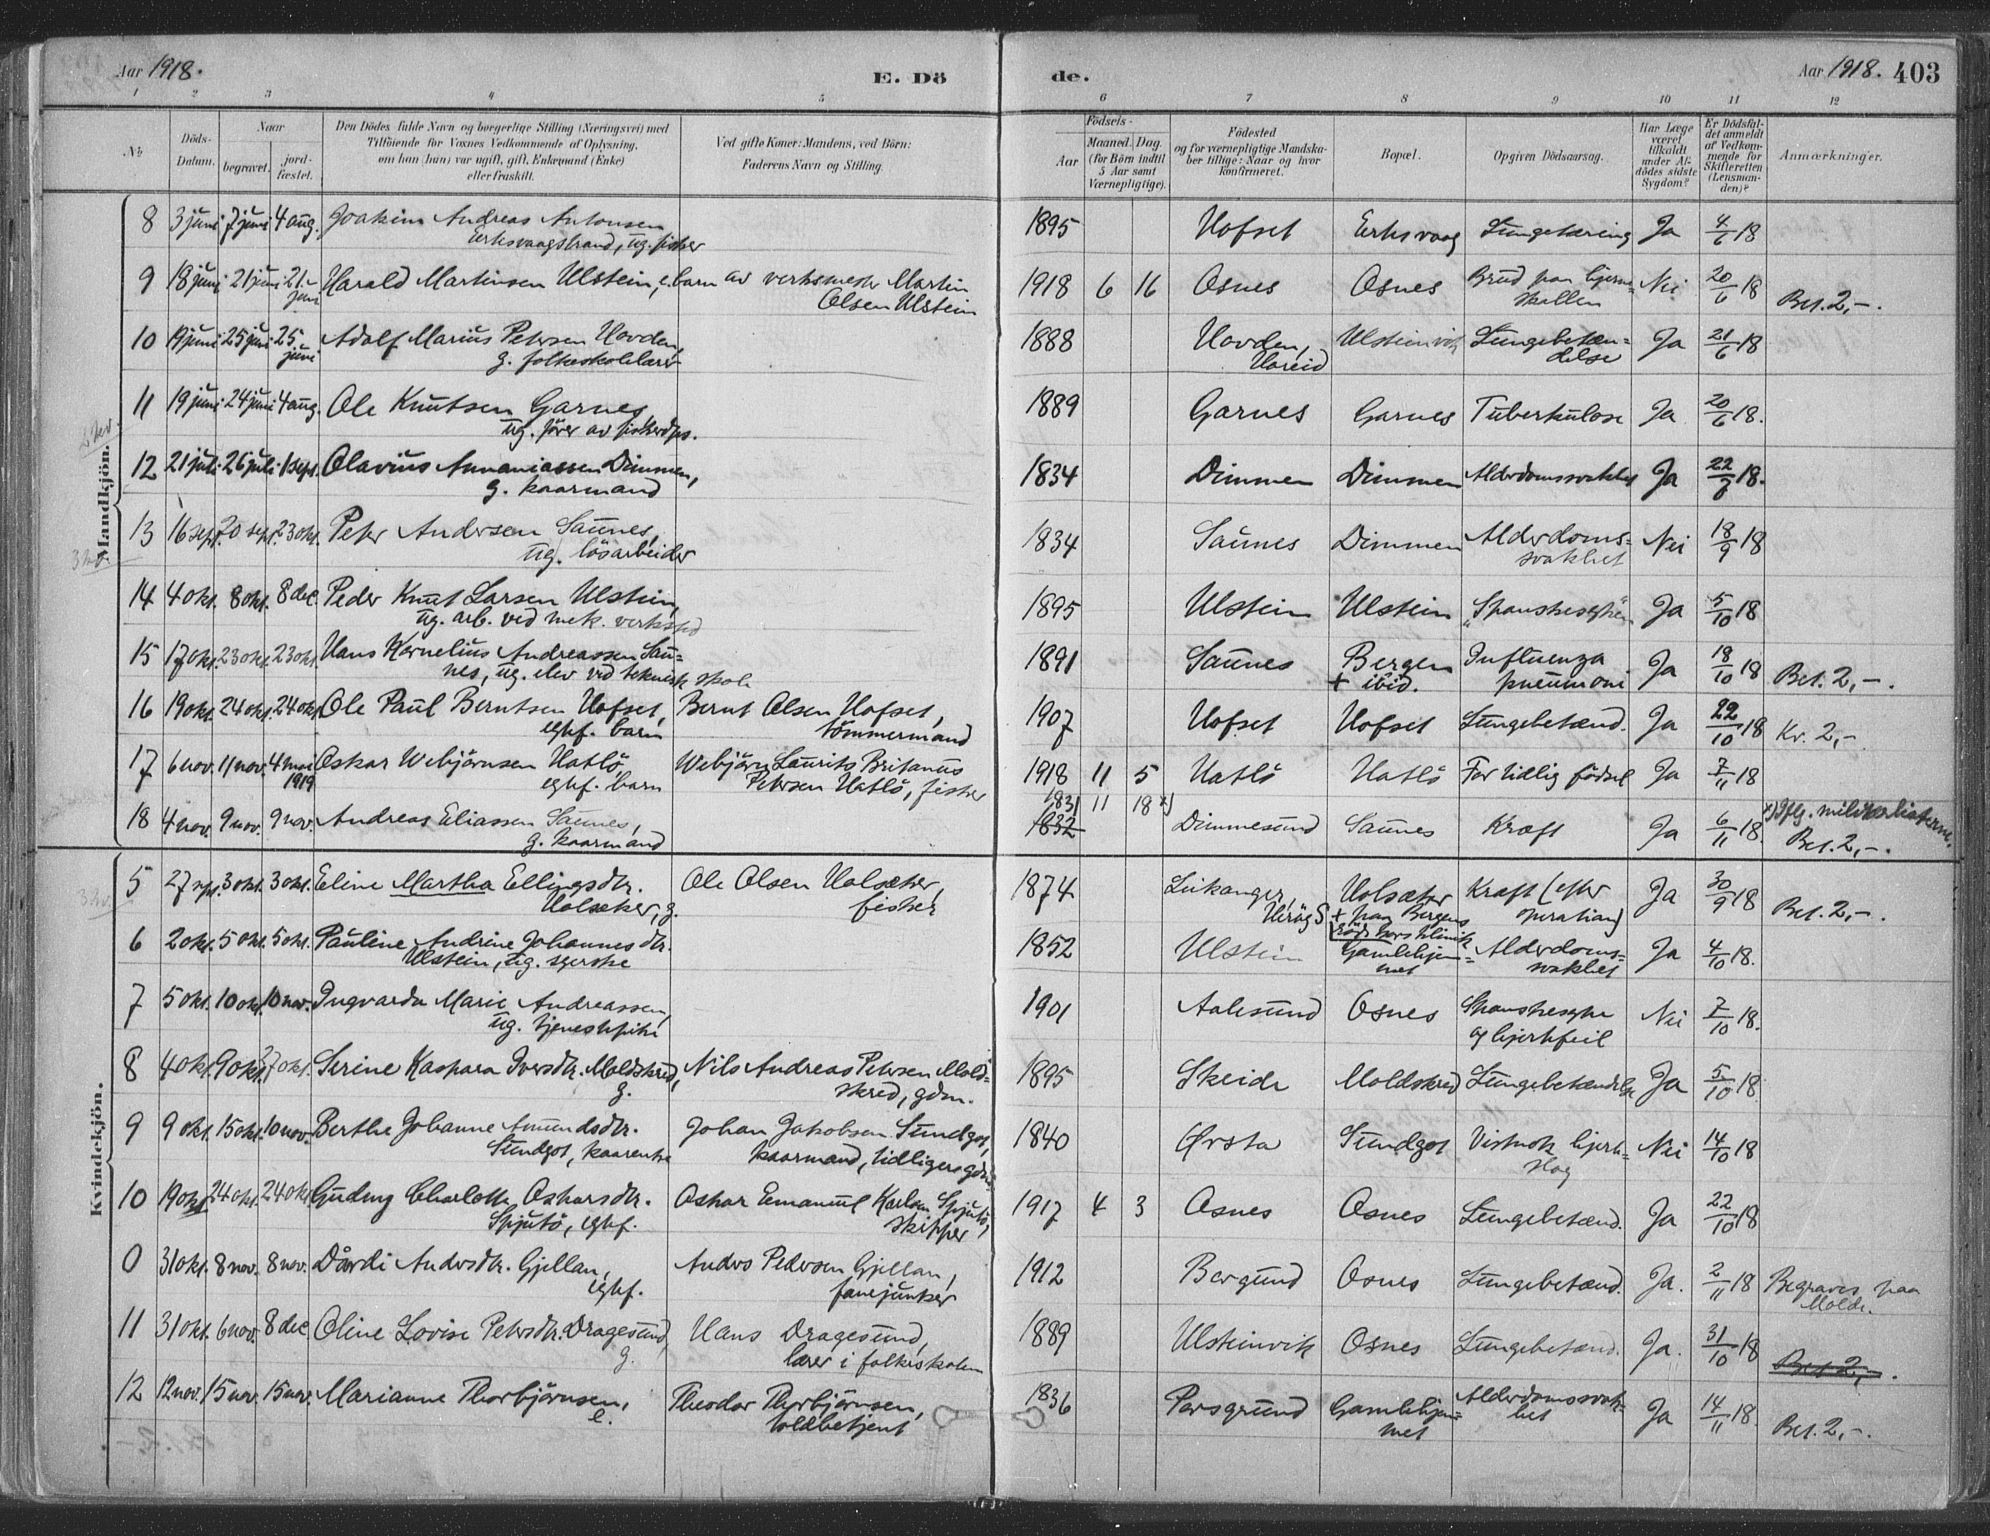 Aar 1918.
E. Dö
de.
Aar 1918. 403
1 2 3 4 5 6 7 8 9 10 11 12
No
Döds-
Datum.
Naar
begravet.
jord-
fæstet.
Den Dödes fulde Navn og borgerlige Stilling (Næringsvei) med
Tilföiende for Voxnes Vedkommende af Oplysning,
om han (hun) var ugift, gift, Enkemand (Enke)
eller fraskilt.
Ved gifte Koner: Mandens, ved Börn:
Faderens Navn og Stilling.
Födsels-
Aar
Maaned. Dag.
(for Börn indtil
5 Aar samt
Værnepligtige).
Födested
og for værnepligtige Mandska-
ber tillige: Naar og hvor
konfirmeret.
Bopæl.
Opgiven Dödsaarsag.
Har Læge
været
tilkaldt
under Af-
dödes sidste
Sygdom?
Er Dödsfal-
det anmeldt
af Vedkom-
mende for
Skifteretten
(Lensman-
den)?
Anmærkninger.
Mandkjön.
8 3 juni 7 juni 4 aug. Joakim Andreas Antonsen 1895 Hofset Erksvaag Lungetæring Ja 4/6 18
Erksvaagstrand, ug. fisker
9 18 juni 21 juni 21. juni Harald Martinsen Ulstein, e. barn av verksmester Martin 1918 6 16 Osnes Osnes Brud paa hjerne- Nei 20/6 18 Bet. 2,-.
Olsen Ulstein skallen
10 19 juni 25 juni 25 juni Adolf Marius Petersen Hovden, 1888 Hovden, Ulsteinvik Lungebetæn- Ja 21/6 18
g. folkeskolelærer Hareid delse
11 19 juni 24 juni 4 aug. Ole Knutsen Garnes 1889 Garnes Garnes Tuberkulose Ja 20/6 18.
ug. fører av fiskerdps.
12 21 juli 26 juli 1 sept. Olavius Annaniassen Dimmen, 1834 Dimmen Dimmen Alderdomssvakhet Ja 22/8 18.
g. kaarmand
13 16 sept. 20 sept. 23 okt. Peter Andersen Saunes, 1834 Saunes Dimmen Alderdoms- Nei 18/9 18
ug. løsarbeider svakhet
14 4 okt. 8 okt. 8 dec. Peder Knut Larsen Ulstein, 1895 Ulstein Ulstein "Spanskesyken" Ja 5/10 18
ug. arb. ved mek. verksted
15 17 okt. 23 okt. 23 okt. Hans Kornelius Andreassen Sau- 1891 Saunes Bergen Influenza Ja 18/10 18 Bet. 2,-.
nes, ug. elev ved teknisk skole + ibid. pneumoni
16 19 okt. 24 okt. 24 okt. Ole Paul Berntsen Hofset, Bernt Olsen Hofset, 1907 Hofset Hofset Lungebetænd. Ja 22/10 18 Kr. 2,-
eghf. barn tømmermand
17 6 nov. 11 nov. 4 mai 1919 Oskar Webjørnsen Hatlö Webjørn Laurits Britanus 1918 11 5 Hatlö Hatlö For tidlig fødsel Ja 7/11 18
eghf. barn Petersen Hatlö, fisker
18 4 nov. 9 nov. 9 nov. Andreas Eliassen Saunes, 1832 1831 11 18 x) Dimmesund Saunes Kræft Ja 6/11 18. x) Iflg. militærlisterne.
g. kaarmand Bet. 2,-.
Kvindekjön.
5 27 sept. 3 okt. 3 okt. Eline Martha Ellingsdtr. Ole Olsen Holsæker, 1874 Leikanger, Holsæker Kræft (efter Ja 30/9 18 Bet. 2,-.
Holsæker, g. fisker Herøg S + paa Bergens operation)
røde kors klinik
6 2 okt. 5 okt. 5 okt. Pauline Andrine Johannesdtr. 1852 Ulstein Gamlehjem- Alderdoms- Ja 4/10 18.
Ulstein, ug. syerske met svakhet
7 5 okt. 10 okt. 10 nov. Ingvarda Marie Andreassen, 1901 Aalesund Osnes Spanskesyke Nei 7/10 18.
ug. tjenestepike og hjertefeil
8 4 okt. 9 okt. 27 okt. Serine Kaspara Iversdtr. Moldskred, Nils Andreas Petersen Mold- 1895 Skeide Moldskred Lungebetændelse Ja 5/10 18.
g. skred, gdm.
9 9 okt. 15 okt. 10 nov. Berthe Johanne Amundsdtr. Johan Jakobsen Sundgot, 1840 Ørsta Sundgot Vistnok hjerte- Nei 14/10 18
Sundgot, kaarenke kaarmand, tidligere gdm.
slag
10 19 okt. 24 okt. 24 okt. Gudny Charlotte Oskarsdtr. Oskar Emanuel Karlsen Spjutö, 1917 4 3 Osnes Osnes Lungebetænd. Ja 22/10 18
Spjutö, eghf. skipper
0 31 okt. 8 nov. 8 nov. Dårdi Andersdtr. Gjellan, Anders Pedersen Gjellan, 1912 Borgund Osnes Lungebetænd. Ja. 2/11 18 Begraves paa
eghf. fanejunker Molde.
11 31 okt. 6 nov. 8 dec. Oline Lovise Petersdtr. Dragesund, Hans Dragesund, 1889 Ulsteinvik Osnes Lungebetænd. Ja. 31/10 18 Bet. 2,-.
g. lærer i folkeskolen
12 12 nov. 15 nov. 15 nov. Marianne Thorbjørnsen, Theodor Thorbjørnsen, 1836 Porsgrund Gamlehjem- Alderdomssvak- Ja 14/11 18. Bet. 2,-.
e. toldbetjent met het